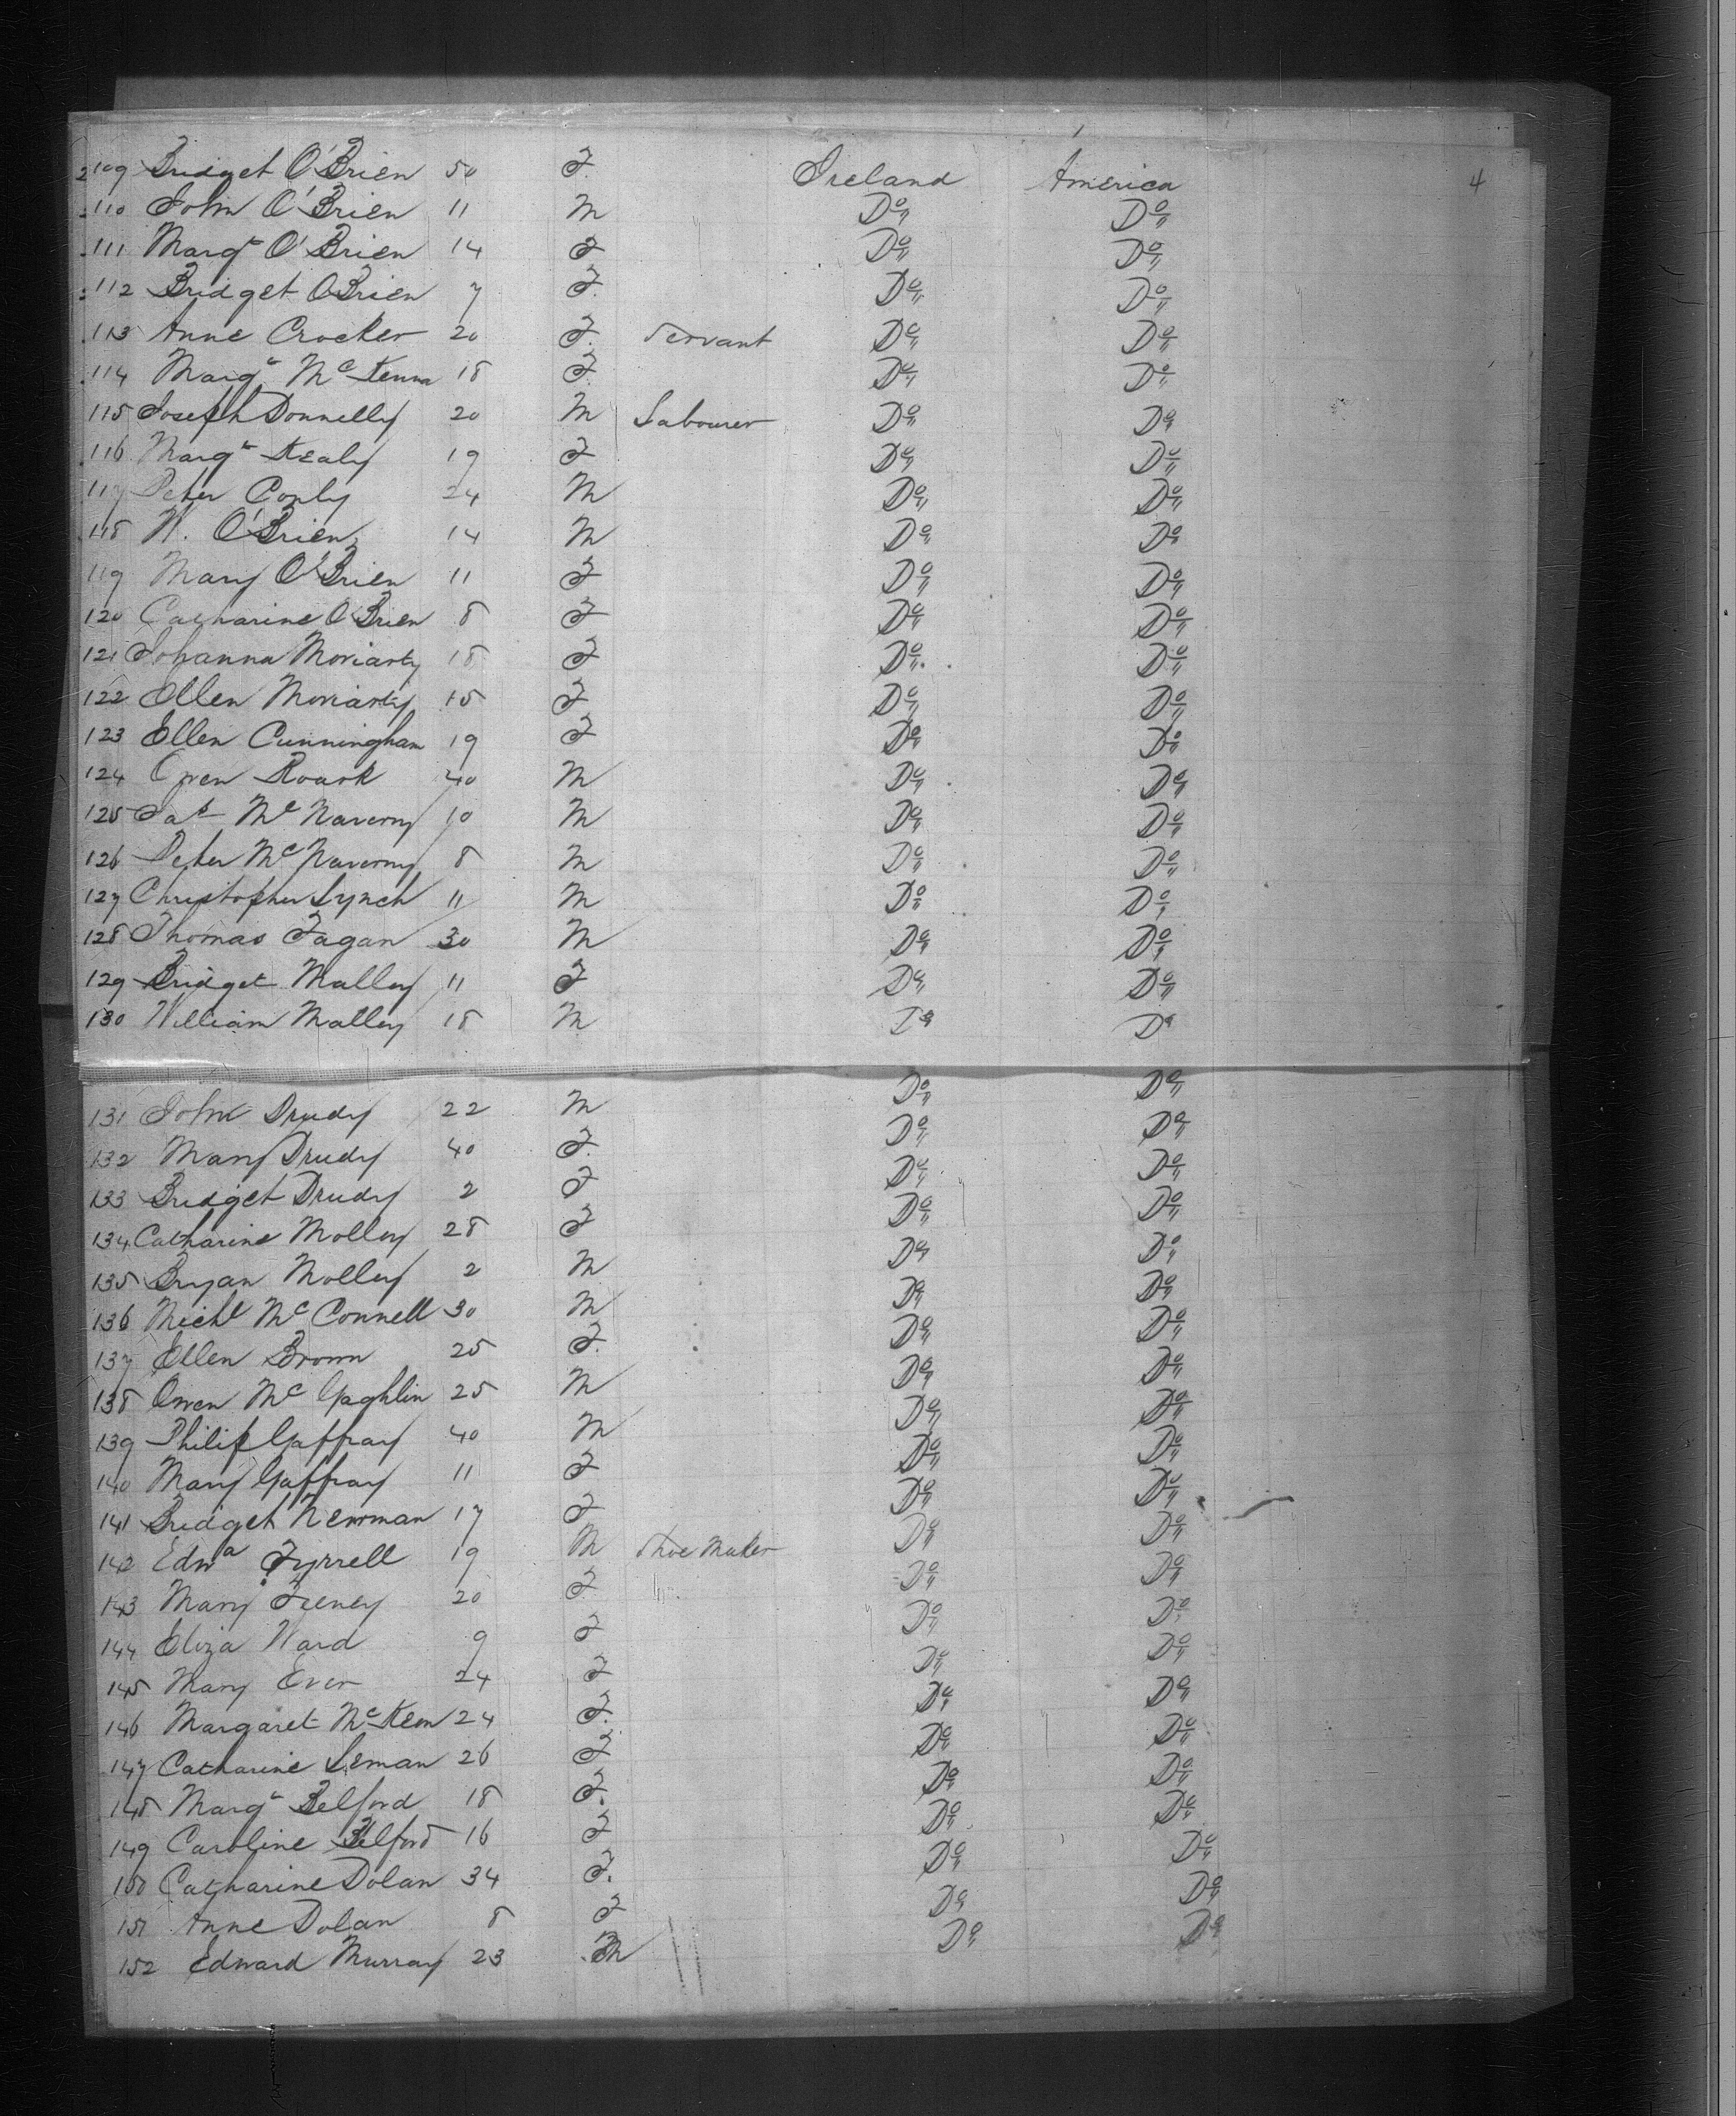 109 Bridget O'Brien 50 F. Ireland America 4
110 John O'Brien 11 M Do Do
111 Margt O'Brien 14 F Do Do
112 Bridget O'Brien 7 F. Do Do
113 Anne Crocker 20 F. Servant Do Do
114 Margt McKenna 18 F. Do Do
115 Joseph Donnelly 20 M Labourer Do Do
116 Margt Kealy 19 F Do Do
117 Peter Conly 24 M Do Do
118 W. O'Brien 14 M Do Do
119 Mary O'Brien 11 F Do Do
120 Catharine O'Brien 8 F Do Do
121 Johanna Moriarty 18 F Do Do
122 Ellen Moriarty 15 F Do Do
123 Ellen Cunningham 19 F Do Do
124 Owen Roark 40 M Do Do
125 Pat McNaverny 10 M Do Do
126 Peter McNaverny 8 M Do Do
127 Christopher Lynch 11 M Do Do
128 Thomas Fagan 30 M Do Do
129 Bridget Malley 11 F Do Do
130 William Malley 18 M Do Do
131 John Drudy 22 M Do Do
132 Mary Drudy 40 F. Do Do
133 Bridget Drudy 2 F Do Do
134 Catharine Molley 28 F Do Do
135 Bryan Molley 2 M Do Do
136 Michl McConnell 30 M Do Do
137 Ellen Brown 25 F. Do Do
138 Owen McGaghlin 25 M Do Do
139 Philip Gaffray 40 M Do Do
140 Mary Gaffray 11 F Do Do
141 Bridget Newman 17 F Do Do
142 Edwd Tyrrell 19 M Shoe Maker Do Do
143 Mary Feeney 20 F Do Do
144 Eliza Ward 9 F Do Do
145 Mary Ever 24 F Do Do
146 Margaret McKeon 24 F. Do Do
147 Catharine Leman 26 F Do Do
148 Margt Belford 18 F. Do Do
149 Caroline Belford 16 F Do Do
150 Catharine Dolan 34 F. Do Do
151 Anne Dolan 8 F Do Do
152 Edward Murray 23 M Do Do